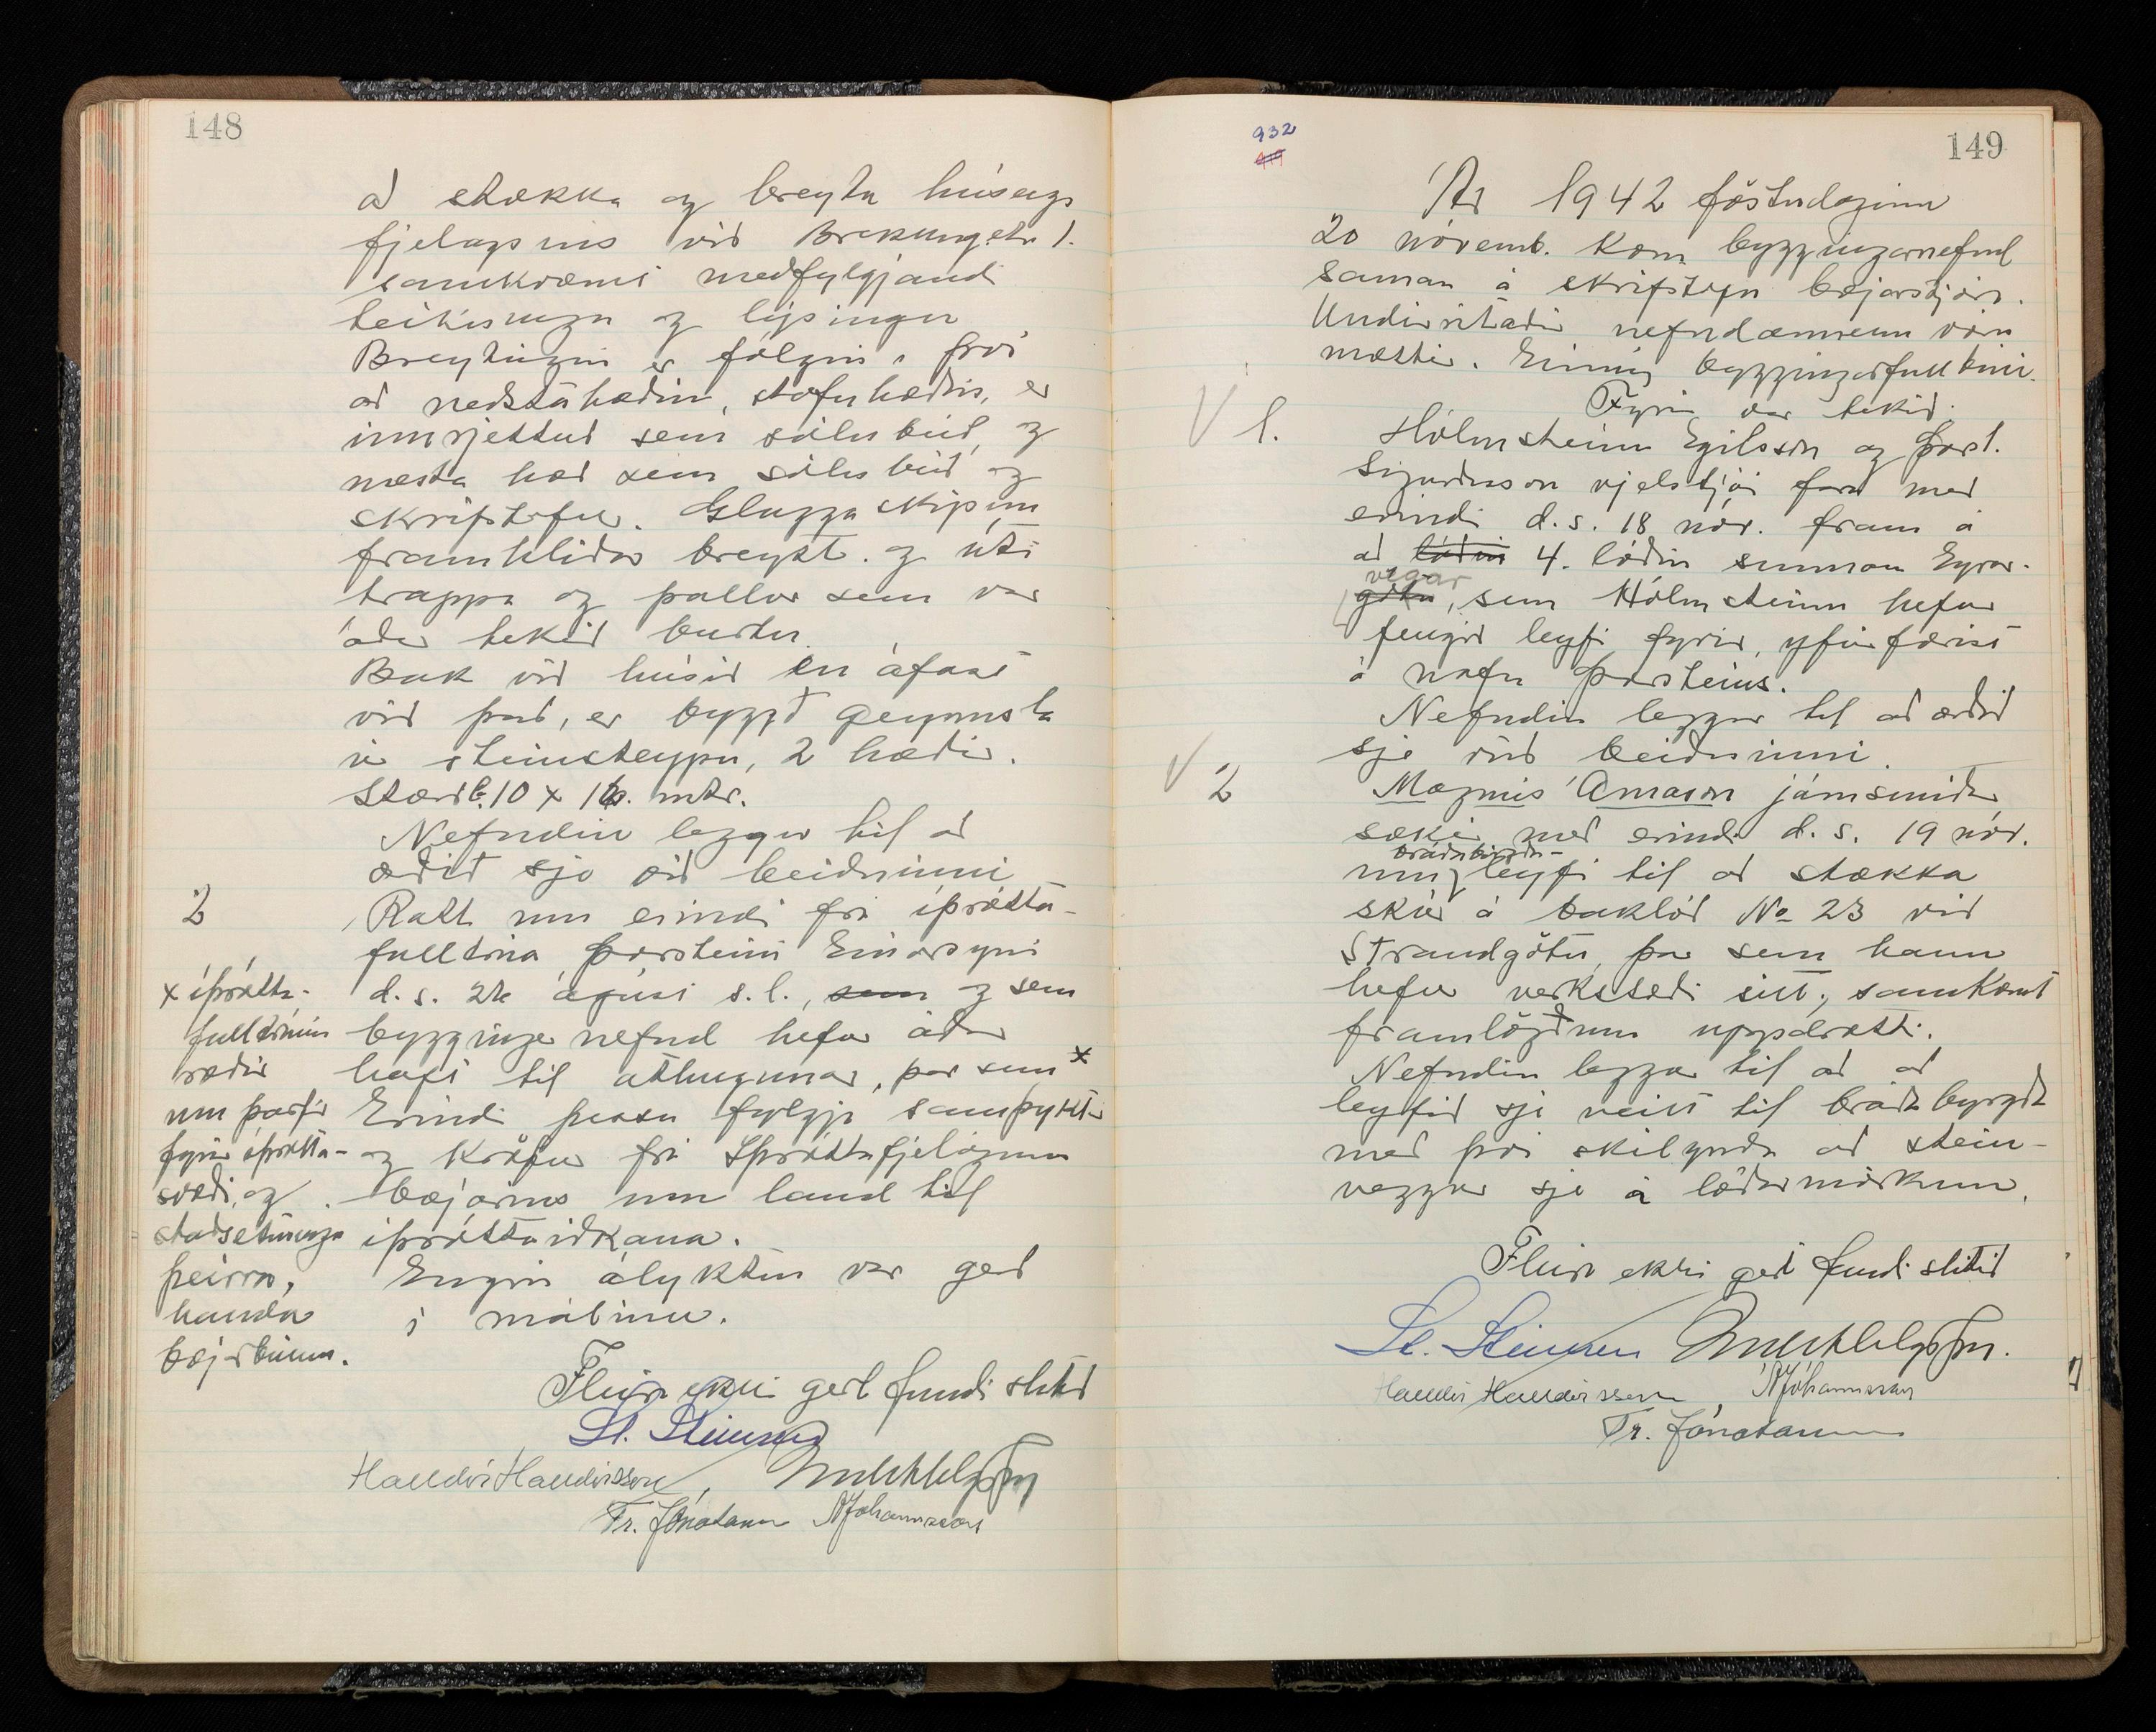 148
að stækka og breyta húseign
fjelagsins við Brekkugötu 1.
samkvæmt meðfylgjandi
teikningu og lýsingu
Breytingin er fólgin í því
að neðstahæðin, stofuhæðin, er
innrjettuð sem sölubúð, og
næsta hæð sem sölubúð og
skrifstofur. Gluggaskipun
framhliðar breytt. og úti
trappa og pallur sem var
áður tekið burtu.
Bak við húsið en áfast
við það, er byggð geymsla
úr steinsteypu, 2 hæðir.
Stærð: 10 x 16. mtr.
Nefndin leggur til að
orðið sje við beiðninni
2
Rætt um erindi frá íþrótta-
fulltrúa Þorsteini Einarsyni
d.s. 26 ágúst s.l., sem og sem
bygginga nefnd hefur áður
haft til athugunar, þar sem x
Erindi þessu fylgja samþyktir
og kröfur frá Íþróttafjelögum
bæjarins um land til
íþróttaiðkana.
Engin ályktun var gerð
í málinu.
x íþrótta-
fulltrúinn
ræðir
um þörf
fyrir íþrótta-
svæði, og
staðsetningu
þeirra,
handa
bæjarbúum.
Fleira ekki gert fundi slitið
St. Steinsen
Halldór Halldórsson,
Tr. Jónatanss AJóhannsson
932
149
Ár 1942 föstudaginn
20 nóvemb. kom byggingarnefnd
saman á skrifstofu bæjarstjóra.
Undirritaðir nefndarmenn voru
mættir. Einnig byggingarfulltrúi.
Fyrir var tekið.
V 1.
Hólmsteinn Egilsson og Þorst.
Sigurðsson vjelstjóri fara með
erindi d.s. 18 nóv. fram á
að lóðin 4. lóðin sunnan Eyrar-
vegar
götu, sem Hólmsteinn hefur
fengið leyfi fyrir, yfirfærist
á nafn Þorsteins.
Nefndin leggur til að orðið
sje við beiðninni.
V 2
Magnús Árnason járnsmiður
sækir með erindi d.s. 19 nóv.
bráðabirgða-
um leyfi til að stækka
skúr á baklóð No 23 við
Strandgötu, þar sem hann
hefur verkstæði sitt, samkvæmt
framlögðum uppdrætti.
Nefndin leggur til að að
leyfið sje veitt til bráðabyrgða
með því skilyrði að stein-
veggur sje á lóðarmörkum.
Fleira ekki gert fundi slitið
St. Steinsen
Halldór Halldórsson AJóhannsson
Tr. Jónatanss